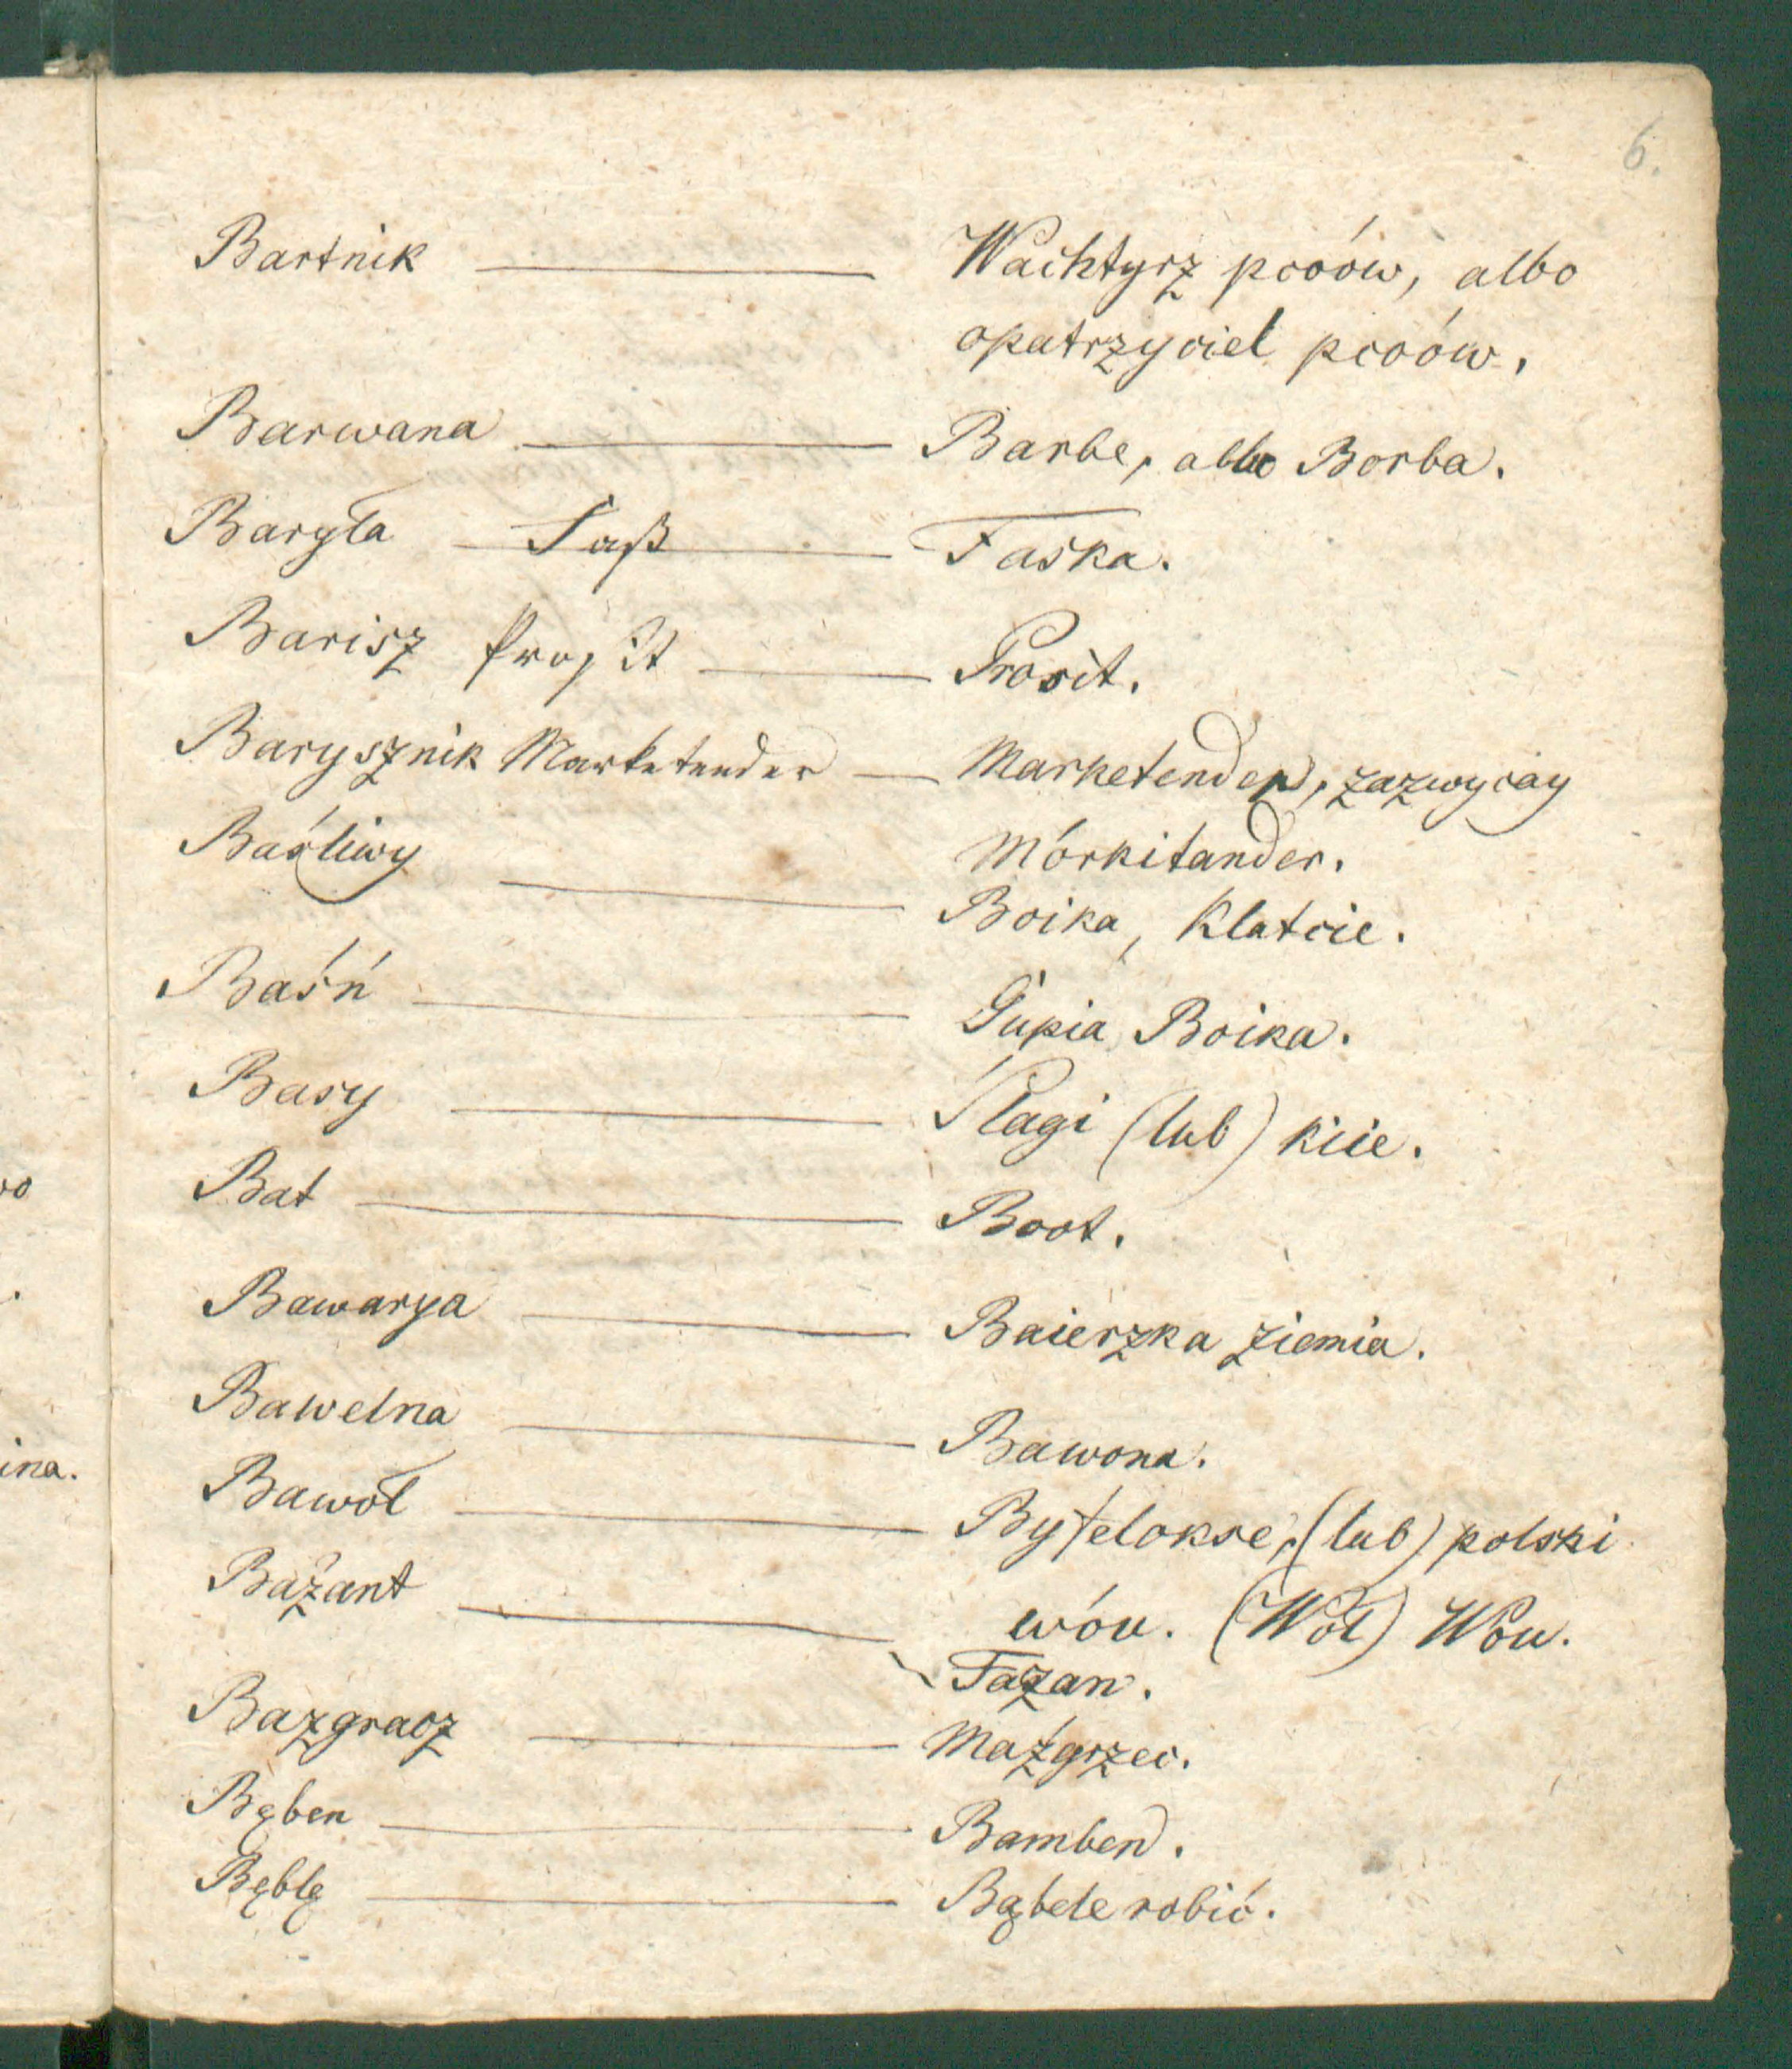 6.
Bartnik — Wachtyrz pcoów, albo
opatrzyciel pcoów.
Barwana — Barbe, albo Borba.
Baryła — Faß — Faska.
Barisz Profit — Prosit.
Barysznik Marketender — Marketender, zazwyciay
Mórkitander.
Baśliwy — Boika, Klatcie.
Baśń — Gupia Boika.
Basy — Plagi (lub) kiie.
Bat — Boot.
Bawarya — Baierzka ziemia.
Bawelna — Bawona.
Bawoł — Byfelokse, (lub) polski
wóu. (Wół) Wou.
Bażant — Fazan.
Bazgracz — Maźgrzec.
Bęben — Bamben.
Bęblę — Bąbele robić.
vo
ina.